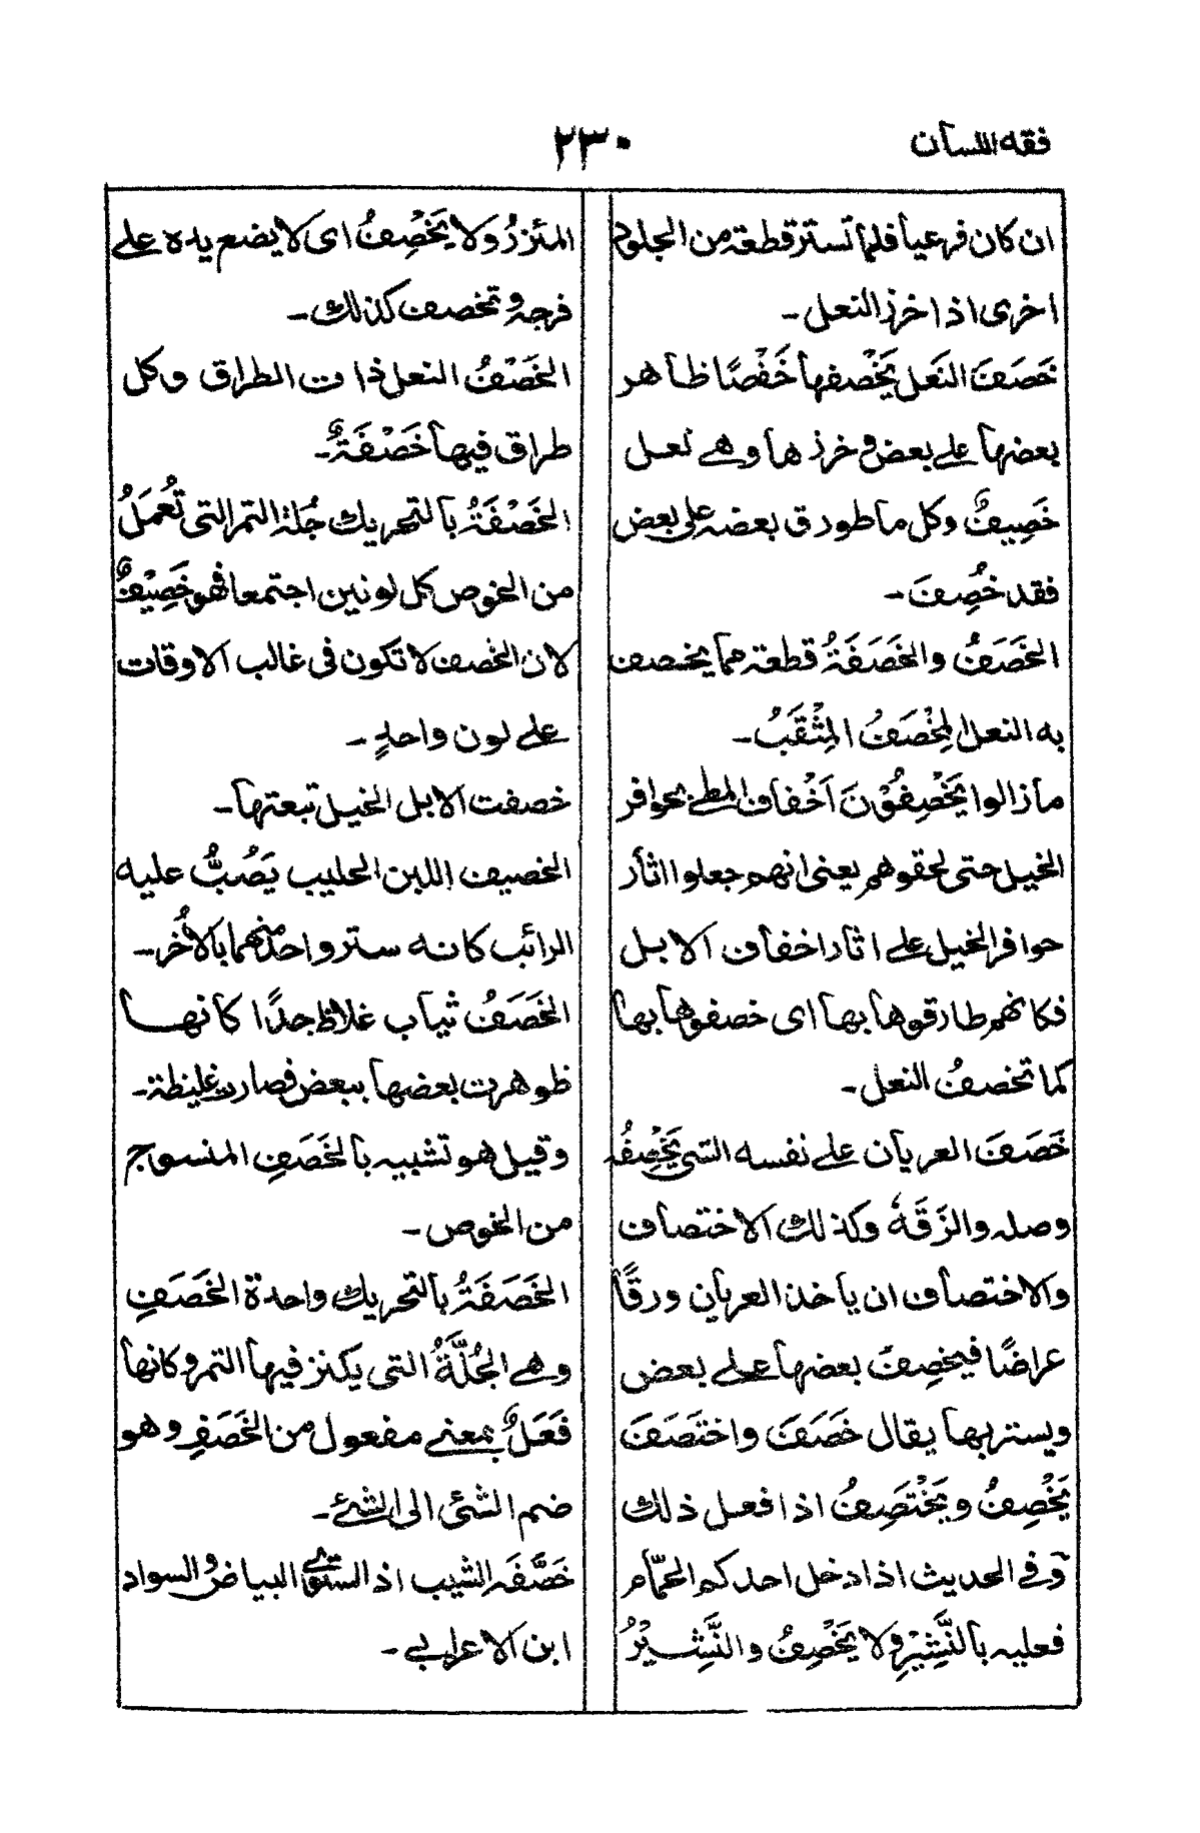 فقه اللسان
٢٣٠
ان كان فرعيا فلها تستر قطعة من الجلود
اخرى اذا خرز النعل ـ
خَصَفَ النَعل يَخْصفها خَفْصًا ظاهر
بعضها على بعض و خرزها وهى نعل
خَصِيفٌ وكل ما طورق بعضه على بعض
فقد خُصِفَ ـ
الخَصَفُ والخَصَفَةُ قطعة مما يخصف
به النعل المِخْصَفُ المِثْقَبُ ـ
مازالوا يَخْصِفُوْنَ اَخْفاف المطى بحوافر
الخيل حتى لحقوهم يعنى انهم جعلوا اثار
حوافر الخيل على اثار اخفاف الابل
فكانهم طارقوها بها اى خصفوها بها
كما تخصفُ النعل ـ
خَصَفَ العريان على نفسه الشى يَخْصِفُه
وصله والزَقَهٗ وكذلك الاختصاف
والاختصاف ان ياخذ العريان ورقًا
عراضًا فيخصِفَ بعضها على بعض
ويستر بها يقال خَصَفَ واختَصَفَ
يَخْصِفُ ويَخْتَصِفُ اذا فعل ذلك
وفى الحديث اذا دخل احدكم الحمّام
فعليه بالنَّشِيْرِ ولا يَخْصِفُ والنَّشِيْرُ
المئزرُ وَلا يَخْصِفُ اى لا يضع يده على
فرجه وتخصف كذلك ـ
الخَصْفُ النعل ذات الطراق وكل
طراق فيها خَصْفَةٌ ـ
الخَصْفَةُ بالتحريك جُلة التمر التى تُعمَلُ
من الخوص كل لونين اجتمعا فهو خَصِيْفٌ
لان الخصف لا تكون فى غالب الاوقات
على لون واحدٍ ـ
خصفت الابل الخيل تبعتها ـ
الخصيف اللبن الحليب يَصُبُّ عليه
الرائب كانه ستر واحدٌ منهما بالأخر ـ
الخَصَفُ ثياب غلاظ جدًا كانها
ظوهرت بعضها ببعض فصارت غليظة ـ
وقيل هو تشبيه بالخَصَفِ المنسوج
من الخوص ـ
الخَصَفَةُ بالتحريك واحدة الخَصَفِ
وهى الجُلَّةُ التى يكنز فيها التمر وكانها
فَعَلٌ بمعنى مفعول من الخَصَفِ وهو
ضم الشئ الى الشئ ـ
خَصَّفَه الشيب اذا استوى البياض والسواد
ابن الاعرابى ـ